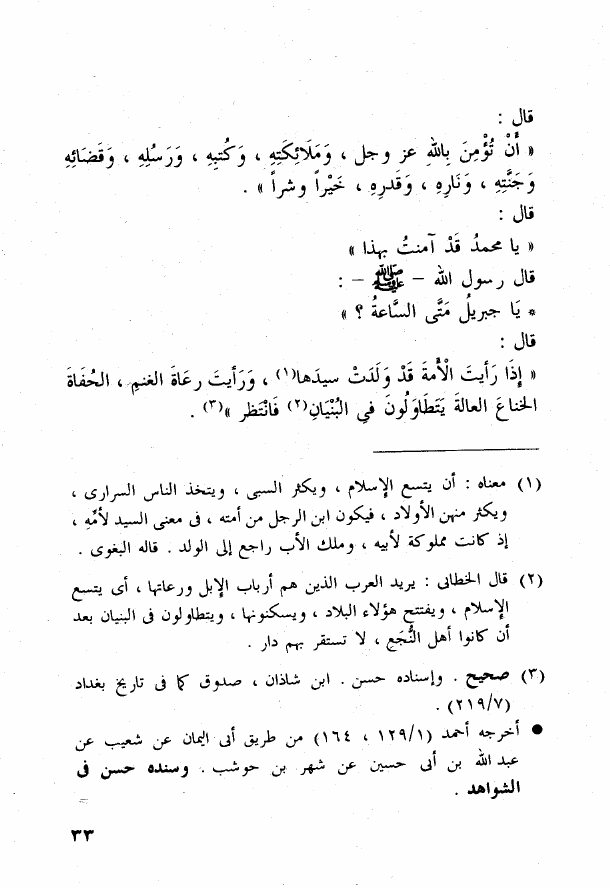 قال :
« أَنْ تُؤْمِنَ بِاللهِ عز وجل ، وَمَلَائِكَتِهِ ، وَكُتبِهِ ، وَرَسُلِهِ ، وَقَضَائِهِ
وَجَنَّتِهِ ، وَنَارِهِ ، وَقَدرِهِ ، خَيْراً وشراً » .
قال :
« يا محمدُ قَدْ آمنتُ بهذا »
قال رسول الله – ﷺ – :
« يَا جبريلُ مَتَّى السَّاعةُ ؟ »
قال :
« إِذَا رَأيتَ الْأَمةَ قَدْ وَلَدَتْ سيدَها(١) ، وَرَأيتَ رعَاةَ الغنمِ ، الحُفَاةَ
الخناعَ العالةَ يَتَطَاوَلُونَ في البُنْيَانِ(٢) فَانْتَظر »(٣) .
(١) معناه : أن يتسع الإسلام ، ويكثر السبى ، ويتخذ الناس السرارى ،
ويكثر منهن الأولاد ، فيكون ابن الرجل من أمته ، فى معنى السيد لأمِّه ،
إذ كانت مملوكة لأبيه ، وملك الأب راجع إلى الولد . قاله البغوى .
(٢) قال الخطابى : يريد العرب الذين هم أرباب الإبل ورعاتها ، أى يتسع
الإسلام ، ويفتتح هؤلاء البلاد ، ويسكنونها ، ويتطاولون فى البنيان بعد
أن كانوا أهل النُّجَعِ ، لا تستقر بهم دار .
(٣) صحيح . وإسناده حسن . ابن شاذان ، صدوق كما فى تاريخ بغداد
(٢١٩/٧) .
● أخرجه أحمد (١٢٩/١ ، ١٦٤) من طريق أبى اليمان عن شعيب عن
عبد الله بن أبى حسين عن شهر بن حوشب . وسنده حسن فى
الشواهد .
٣٣